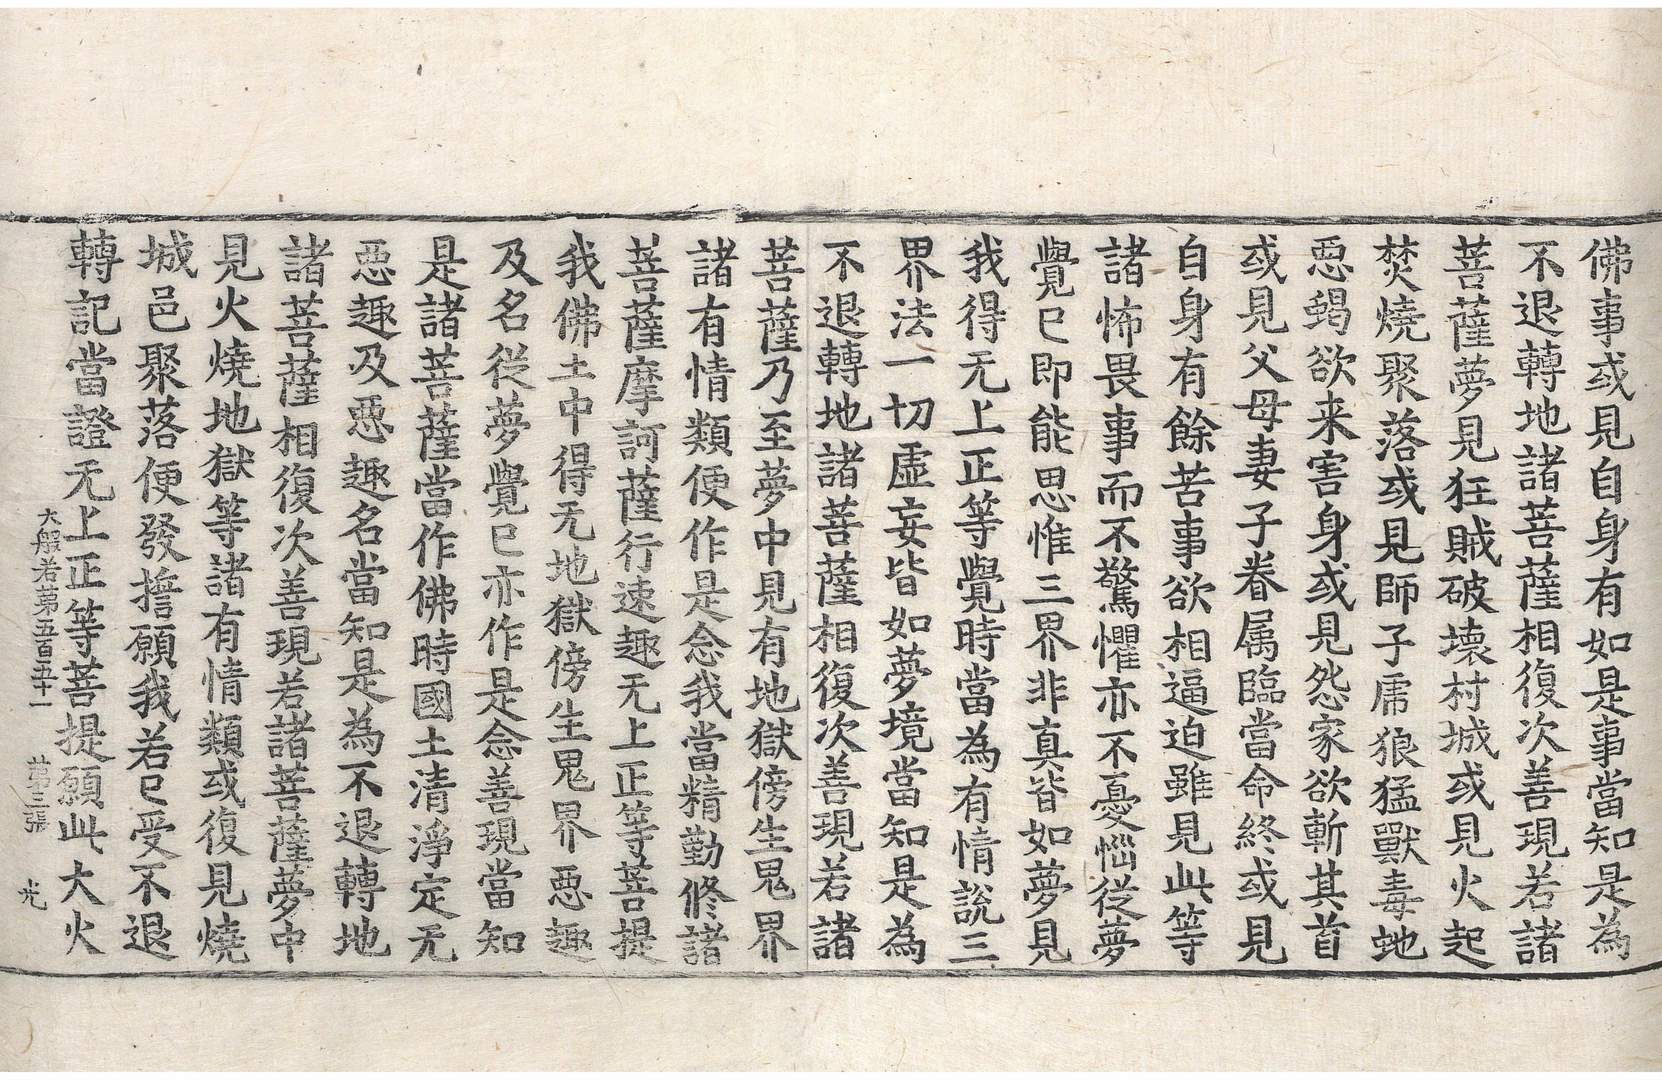 佛事或見自身有如是事當知是為
不退轉地諸菩薩相復次善現若諸
菩薩夢見狂賊破壞村城或見火起
焚燒聚落或見師子虎狼猛獸毒虵
惡蝎欲来害身或見怨家欲斬其首
或見父母妻子眷属臨當命終或見
自身有餘苦事欲相逼迫雖見此等
諸怖畏事而不驚懼亦不憂惱従夢
覺已即能思惟三界非真皆如夢見
我得无上正等覺時當為有情說三
界法一切虛妄皆如夢境當知是為
不退轉地諸菩薩相復次善現若諸
菩薩乃至夢中見有地獄傍生鬼界
諸有情類便作是念我當精勤修諸
菩薩摩訶薩行速趣无上正等菩提
我佛土中得无地獄傍生鬼界惡趣
及名従夢覺已亦作是念善現當知
是諸菩薩當作佛時國土清淨定无
惡趣及惡趣名當知是為不退轉地
諸菩薩相復次善現若諸菩薩夢中
見火燒地獄等諸有情類或復見燒
城邑聚落便發誓願我若已受不退
轉記當證无上正等菩提願此大火
大般若第五百五十一 第三張 光